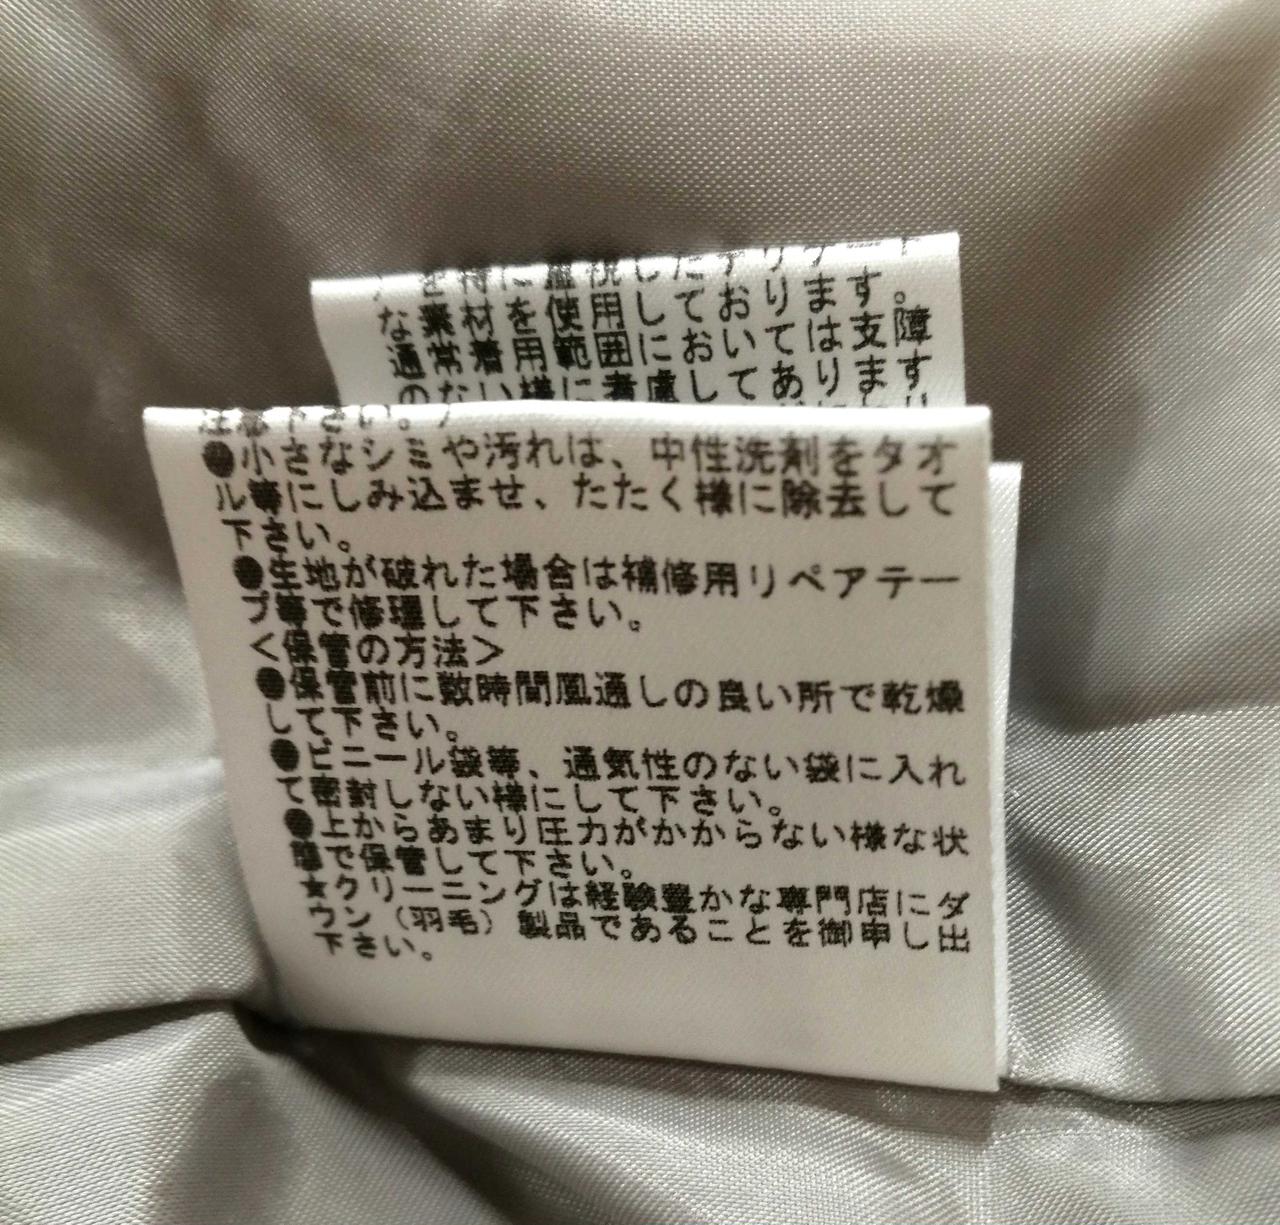 を特に重視したデリケート
な素材を使用しております。
通常着用範囲においては支障
のない様に考慮してあります
注意下さい。)
●小さなシミや汚れは、中性洗剤をタオ
ル等にしみ込ませ、たたく様に除去して
下さい。
●生地が破れた場合は補修用リペアテー
プ等で修理して下さい。
<保管の方法>
●保管前に数時間風通しの良い所で乾燥
して下さい。
●ビニール袋等、通気性のない袋に入れ
て密封しない様にして下さい。
●上からあまり圧力がかからない様な状
態で保管して下さい。
★クリーニングは経験豊かな専門店にダ
ウン(羽毛)製品であることを御申し出
下さい。